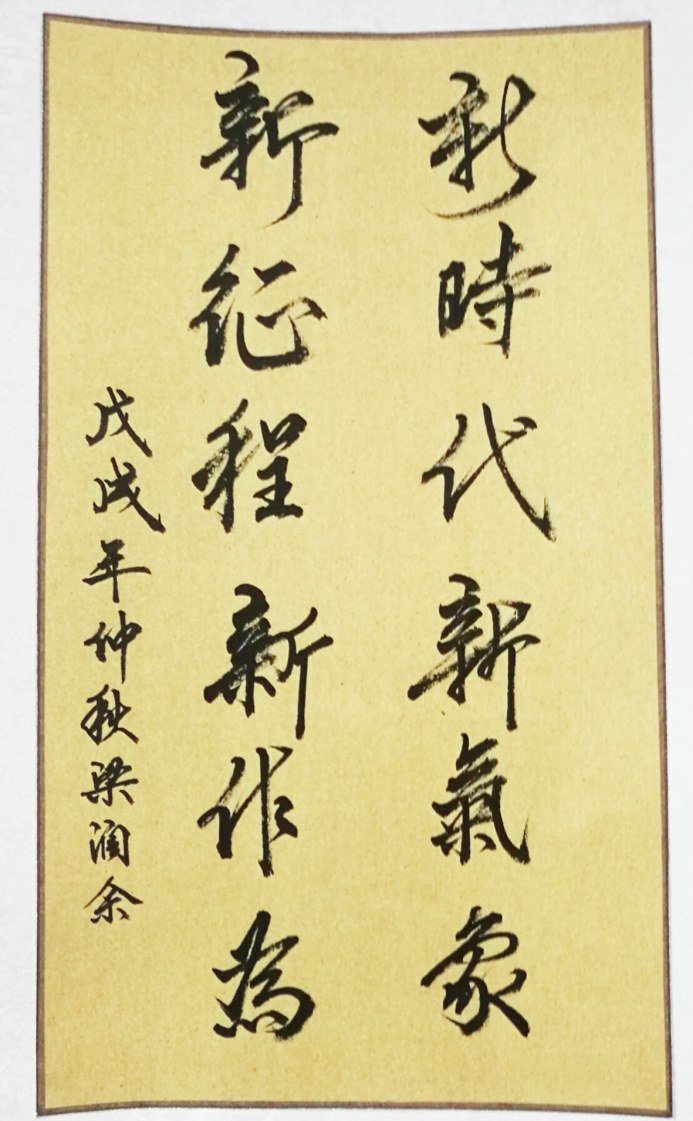 新時代新氣象
新征程新作為
戊戌年仲秋梁润余